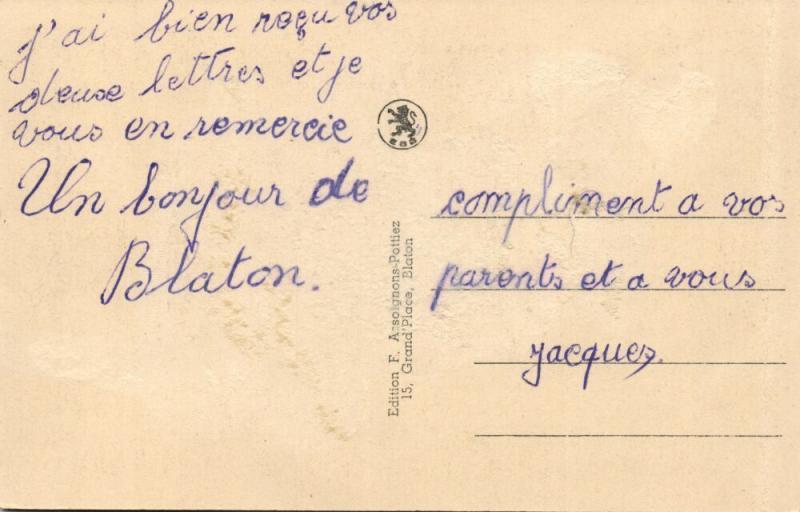 J'ai bien reçu vos
deuse lettres et je
vous en remercie
Un bonjour de
Blaton.
Edition F. Assoignons-Pottiez
15, Grand'Place, Blaton
compliment a vos
parents et a vous
Jacques.